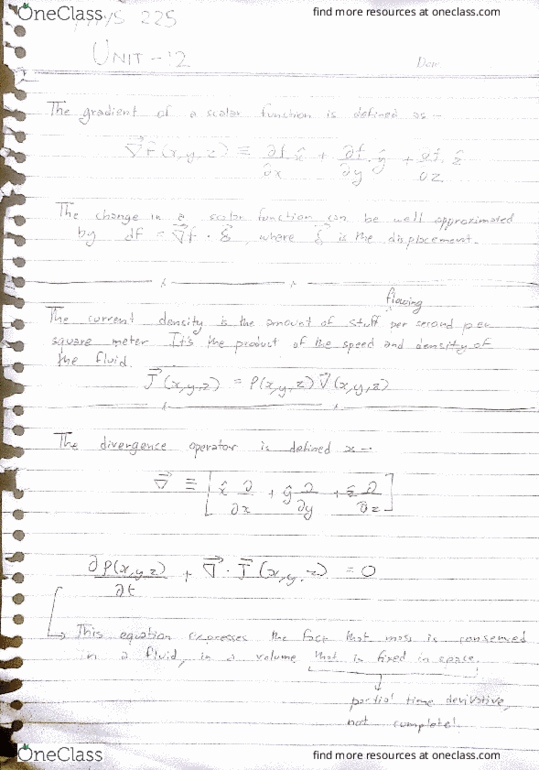 OneClass
find more resources at oneclass.com
PHYS 225
UNIT - 12
The gradient of a scalar function is defined as -
∇⃗f(x,y,z) ≡ ∂f/∂x x̂ + ∂f/∂y ŷ + ∂f/∂z ẑ
The change in a scalar function can be well approximated
by df = ∇⃗f · ε⃗, where ε⃗ is the displacement.
flowing
The current density is the amount of stuff per second per
square meter. It's the product of the speed and density of
the fluid.
J⃗(x,y,z) = ρ(x,y,z) v⃗(x,y,z)
The divergence operator is defined
∇⃗ ≡ [x̂ ∂/∂x + ŷ ∂/∂y + ẑ ∂/∂z]
∂ρ(x,y,z)/∂t + ∇⃗ · J⃗(x,y,z) = 0
This equation expresses the fact that mass is conserved
in a fluid, in a volume that is fixed in space.
partial time derivative,
not complete!
OneClass
find more resources at oneclass.com